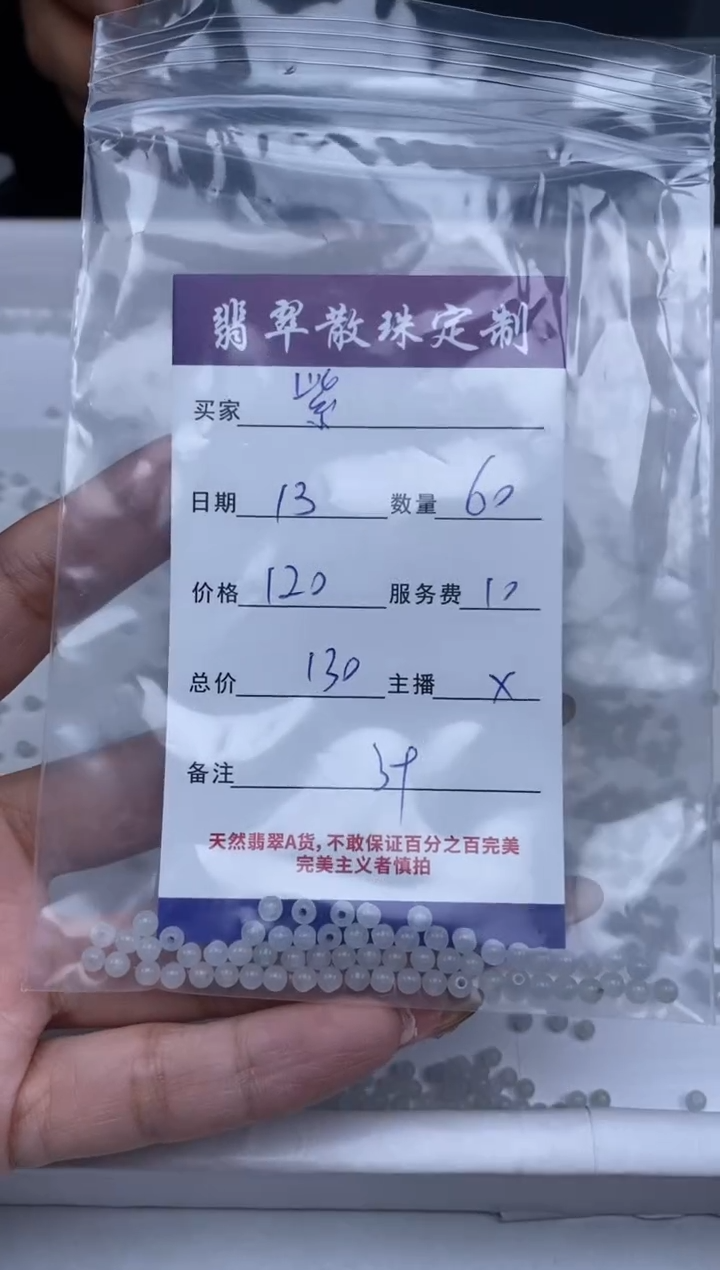 翡翠散珠定制
买家 紫
日期 13 数量 60
价格 120 服务费 10
总价 130 主播 X
备注
天然翡翠A货，不敢保证百分之百完美
完美主义者慎拍